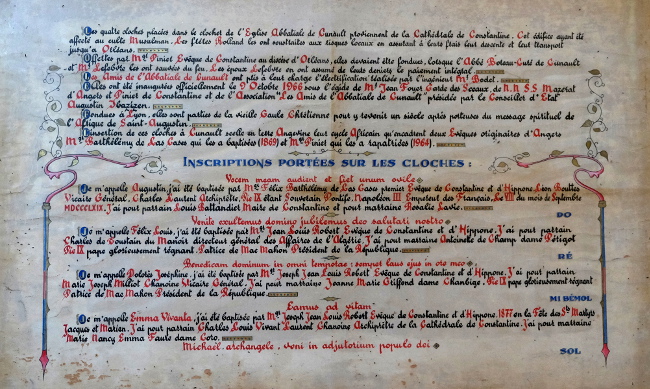 Les quatre cloches placées dans le clocher de l'Eglise Abbatiale de Cunault proviennent de la Cathédrale de Constantine. Cet édifice ayant été
affecté au culte Musulman. Les frères Rolland les ont soustraits aux risques locaux en assurant à leurs frais leur descente et leur transport
jusqu'à Orléans.
Offertes par Mgr Pinier Evêque de Constantine au diocèse d'Orléans, elles devaient être fondues, lorsque l'Abbé Curé de Cunault
et Mr Lefebvre les ont sauvées du feu. Les époux Lefebvre en ont assumé de leurs deniers le paiement intégral.
Les Amis de l'Abbatiale de Cunault ont pris à leur charge l'électrification réalisée par l'ingénieur Mr Bodet.
Elles ont été inaugurées officiellement le 9 Octobre 1966 sous l'égide de Mr Jean Foyer Garde des Sceaux, de N.N. S.S Mazerat
d'Angers et Pinier de Constantine et de l'Association "Les Amis de l'Abbatiale de Cunault" présidée par le Conseiller d'Etat
Augustin Ibazizen.
Fondues à Lyon, elles sont parties de la Vieille Gaule Chrétienne pour y revenir un siècle après porteuses du message spirituel de
l'Afrique de Saint-Augustin.
L'insertion de ces cloches à Cunault scelle en terre Angevine leur cycle Africain qu'encadrent deux Evêques originaires d'Angers
Mgr Barthélémy de Las Cases qui les a baptisées (1869) et Mgr Pinier qui les a rapatriées (1964).
INSCRIPTIONS PORTÉES SUR LES CLOCHES :
Vocem meam audient et fiet unum ovile
Je m'appelle Augustin, j'ai été baptisée par Mgr Félix Barthélémy de Las Cases premier Evêque de Constantine et d'Hippone, Léon Bouttes
Vicaire Général, Charles Laurent Archiprêtre, Pie IX étant Souverain Pontife, Napoléon III Empereur des Français, Le VIII du mois de Septembre
MDCCCLXIX. J'ai pour parrain Louis Battandier Maire de Constantine et pour marraine Rosalie Lavie.
DO
Venite exultemus domino jubilemus deo salutari nostro
Je m'appelle Félix Louis, j'ai été baptisée par Mgr Jean Louis Robert Evêque de Constantine et d'Hippone. J'ai pour parrain
Charles de Toustain du Manoir directeur général des Affaires de l'Algérie, J'ai pour marraine Antoinette de Champ dame Périgot
Pie IX pape glorieusement régnant. Patrice de Mac Mahon Président de la République.
RÉ
Benedicam dominum in omni tempore, semper laus ejus in ore meo
Je m'appelle Joséphine, j'ai été baptisée par Mgr Joseph Jean Louis Robert Evêque de Constantine et d'Hippone. J'ai pour parrain
Marie Joseph Milliot Chanoine Vicaire Général. J'ai pour marraine Jeanne Marie dame Chanbige. Pie IX pape glorieusement régnant
Patrice de Mac Mahon Président de la République.
MI BÉMOL
Eamus ad vitam
Je m'appelle Emma Vivanta, j'ai été baptisée par Mgr Joseph Jean Louis Robert Evêque de Constantine et d'Hippone, 1877 en la Fête des Sts Martyrs
Jacques et Marien. J'ai pour parrain Charles Louis Vivant Laurent Chanoine Archiprêtre de la Cathédrale de Constantine. J'ai pour marraine
Marie Nancy Emma Faure dame
Michaël archangele, veni in adjutorium populo dei
SOL